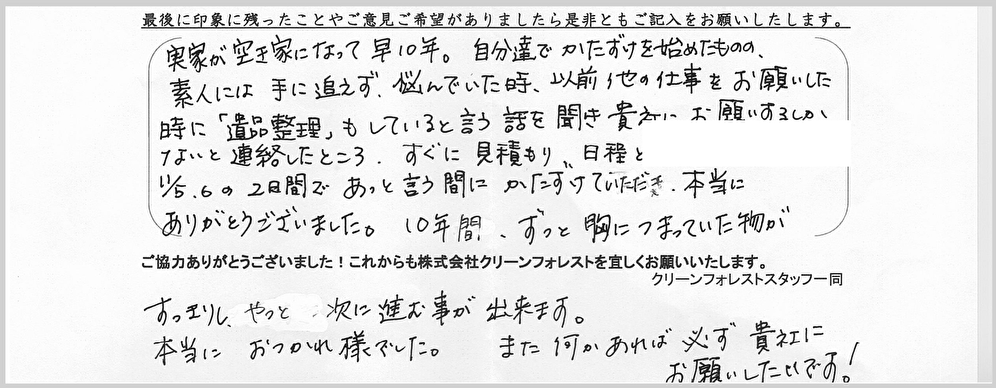 最後に印象に残ったことやご意見ご希望がありましたら是非ともご記入をお願いしたします。
実家が空き家になって早10年。自分達でかたずけを始めたものの、
素人には手に追えず、悩んでいた時、以前他の仕事をお願いした
時に「遺品整理」もしていると言う話を聞き貴社にお願いするしか
ないと連絡したところ、すぐに見積もり、日程と
11/5.6の2日間であっと言う間にかたずけていただき、本当に
ありがとうございました。10年間、ずっと胸につまっていた物が
ご協力ありがとうございました！これからも株式会社クリーンフォレストを宜しくお願いいたします。
クリーンフォレストスタッフ一同
すっきりし、やっと次に進む事が出来ます。
本当におつかれ様でした。また何かあれば必ず貴社に
お願いしたいです！